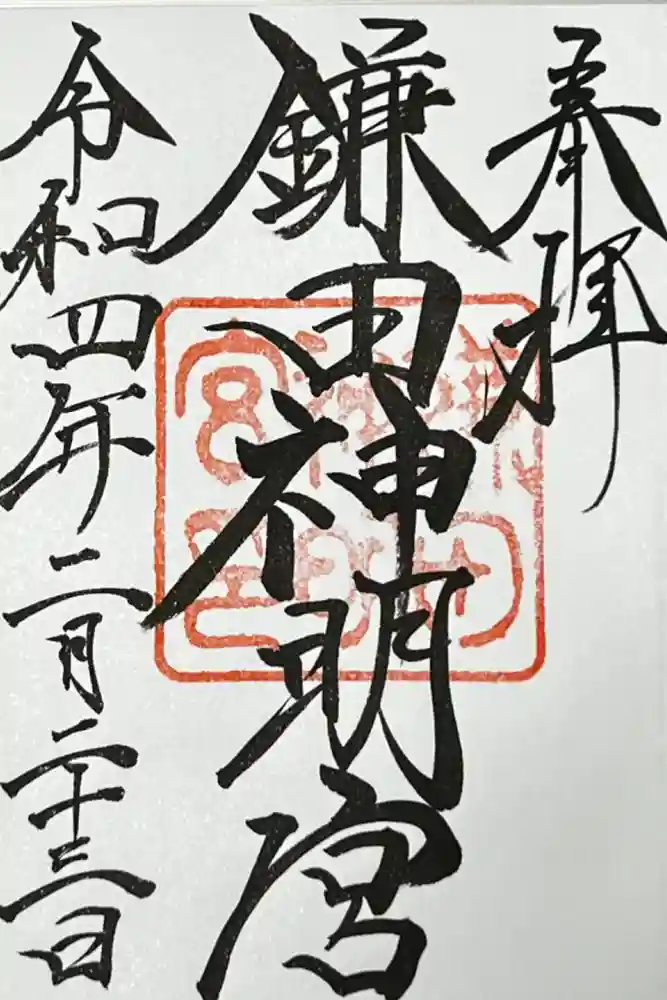 奉拝
鎌田神明宮
令和四年二月二十三日